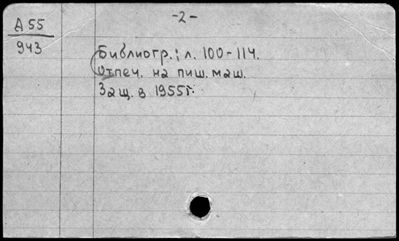 -2-
А 55
943
Библиогр.: л. 100-114.
Отпеч. на пиш. маш.
Защ. в 1955г.